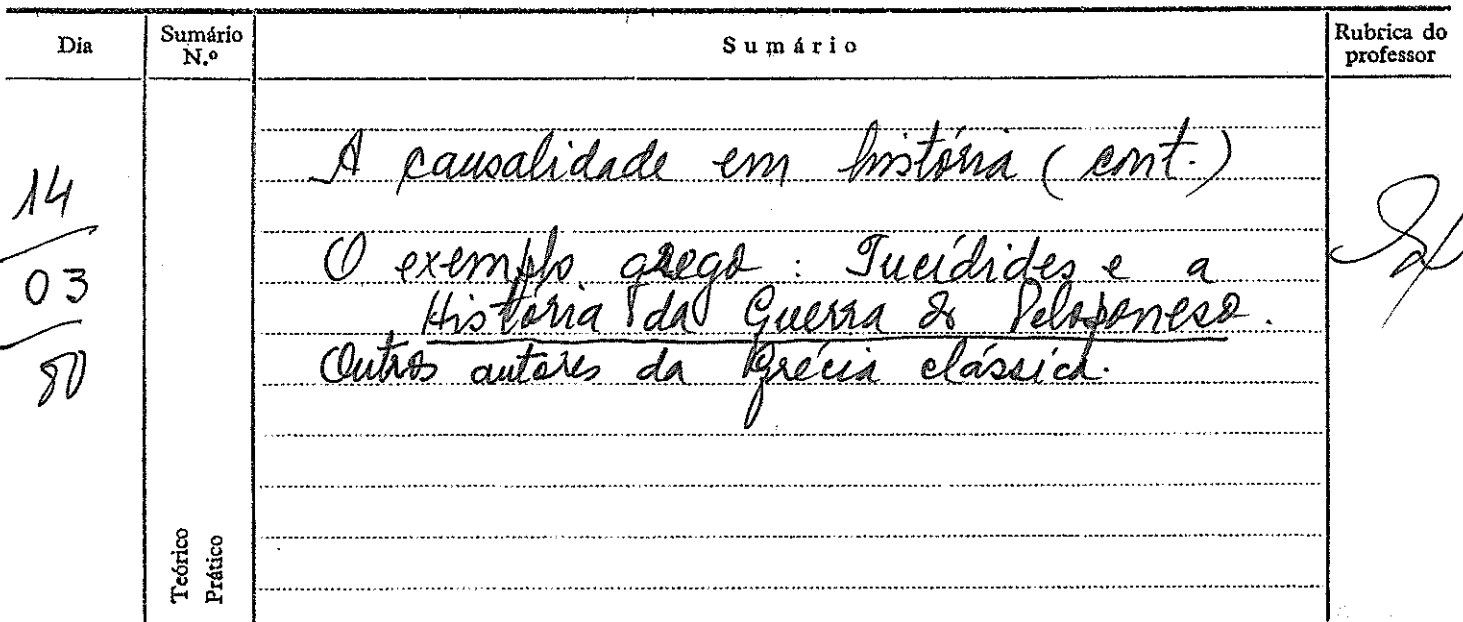 Dia
Sumário N.º
Sumário
Rubrica do professor
14
03
80
A causalidade em história (cont.)
O exemplo grego : Tucídides e a
História da Guerra do Peloponeso.
Outros autores da Grécia clássica.
Teórico
Prático